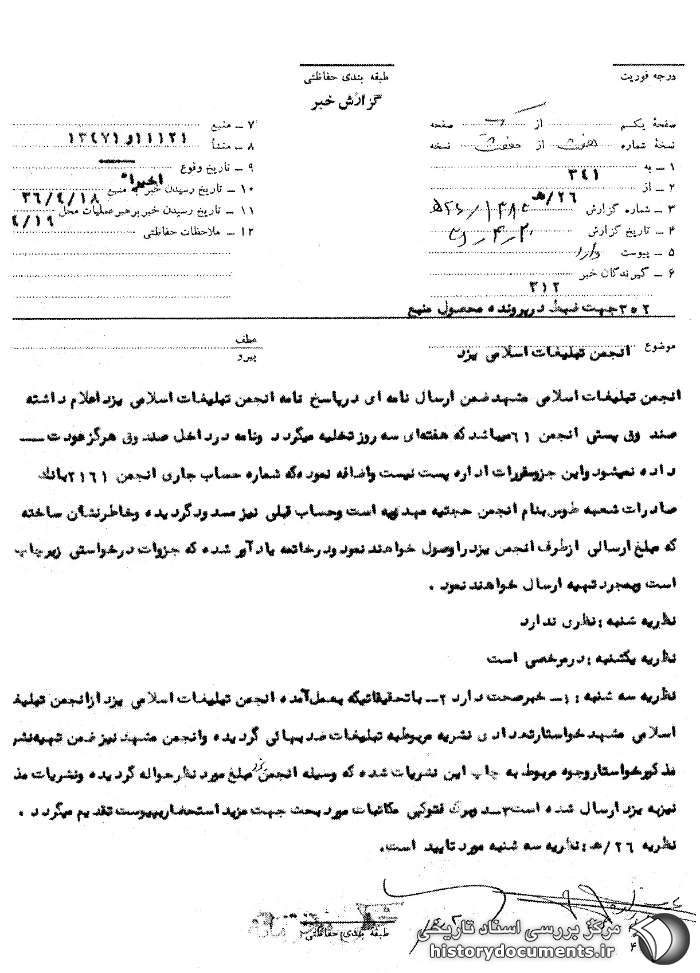 درجه فوریت
طبقه بندی حفاظتی
گزارش خبر
صفحهٔ یکم از صفحه
نسخهٔ شماره هفت از هفت نسخه
۱ ــ به ۳۴۱
۲ ــ از ۲۶/ه
۳ ــ شماره گزارش
۴ ــ تاریخ گزارش
۵ ــ پیوست دارد
۶ ــ گیرندگان خبر
۳۱۲
۳۰۲ جهت ضبط در پرونده محصول منبع
۷ ــ منبع
۸ ــ منشأ ۱۱۱۲۱ و ۱۳۴۷۱
۹ ــ تاریخ وقوع
۱۰ ــ تاریخ رسیدن خبر به منبع اخیرا"
۱۱ ــ تاریخ رسیدن خبر برهبر عملیات محل ۳۶/۴/۱۸
۱۲ ــ ملاحظات حفاظتی ۴/۱۹
موضوع انجمن تبلیغات اسلامی یزد
عطف
پیرو
انجمن تبلیغات اسلامی مشهد ضمن ارسال نامه ای در پاسخ نامه انجمن تبلیغات اسلامی یزد اعلام داشته
صندوق پستی انجمن ۶۱ میباشد که هفته‌ای سه روز تخلیه میگردد ونامه در داخل صندوق هرگز عودت ــ
داده نمیشود واین جزو مقررات اداره پست نیست واضافه نموده‌که شماره حساب جاری انجمن ۲۱۶۱ بانک
صادرات شعبه طوس بنام انجمن حجتیه مهدویه است وحساب قبلی نیز مسدود گردیده وخاطرنشان ساخته
که مبلغ ارسالی ازطرف انجمن یزد را وصول خواهند نمود ودرخاتمه یادآور شده که جزوات درخواستی زیرچاپ
است وبمجرد تهیه ارسال خواهند نمود .
نظریه شنبه : نظری ندارد
نظریه یکشنبه : درمرخصی است
نظریه سه شنبه : ۱ــ خبرصحت دارد ۲ــ باتحقیقاتیکه بعمل‌آمده انجمن تبلیغات اسلامی یزد ازانجمن تبلیغا
اسلامی مشهد خواستارتعدادی نشریه مربوطبه تبلیغات ضدبهائی گردیده وانجمن مشهد نیز ضمن تهیه‌نشر
مذکورخواستاروجوه مربوط به چاپ این نشریات شده که وسیله انجمن یزد مبلغ مورد نظرحواله گردیده ونشریات مذ
نیزبه یزد ارسال شده است ۳ــ دوبرگ فتوکپی مکاتبات مورد بحث جهت مزید استحضارپیوست تقدیم میگردد .
نظریه ۲۶/ه : نظریه سه شنبه مورد تایید است.
طبقه بندی حفاظتی
مرکز بررسی اسناد تاریخی
historydocuments.ir